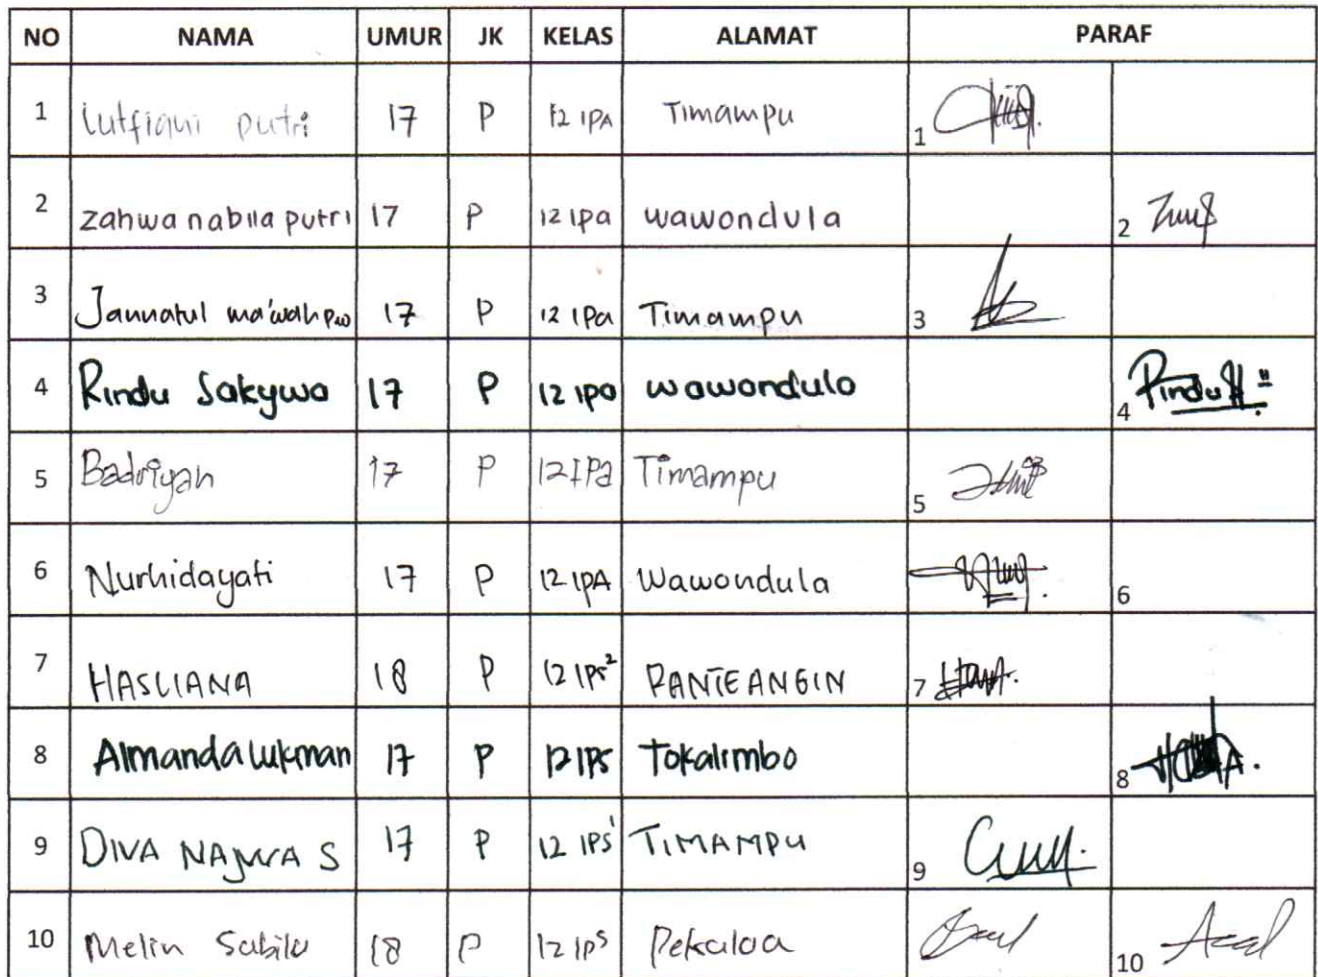 NO NAMA UMUR JK KELAS ALAMAT PARAF
1 Lutfiani putri 17 P 12 IPA Timampu 1
2 Zahwa nabila putri 17 P 12 IPa wawondula 2
3 Jannatul ma'wah 17 P 12 IPa Timampu 3
4 Rindu Sakywa 17 P 12 IPa wawondula 4 Rindu
5 Badriyah 17 P 12 IPa Timampu 5
6 Nurhidayati 17 P 12 IPA Wawondula 6
7 HASLIANA 18 P 12 IPS² PANTE ANGIN 7
8 Almanda lukman 17 P 12 IPS Tokalimbo 8
9 DIVA NAJWA S 17 P 12 IPS¹ TIMAMPU 9
10 Melin Sabila 18 P 12 IPS Pekaloa 10